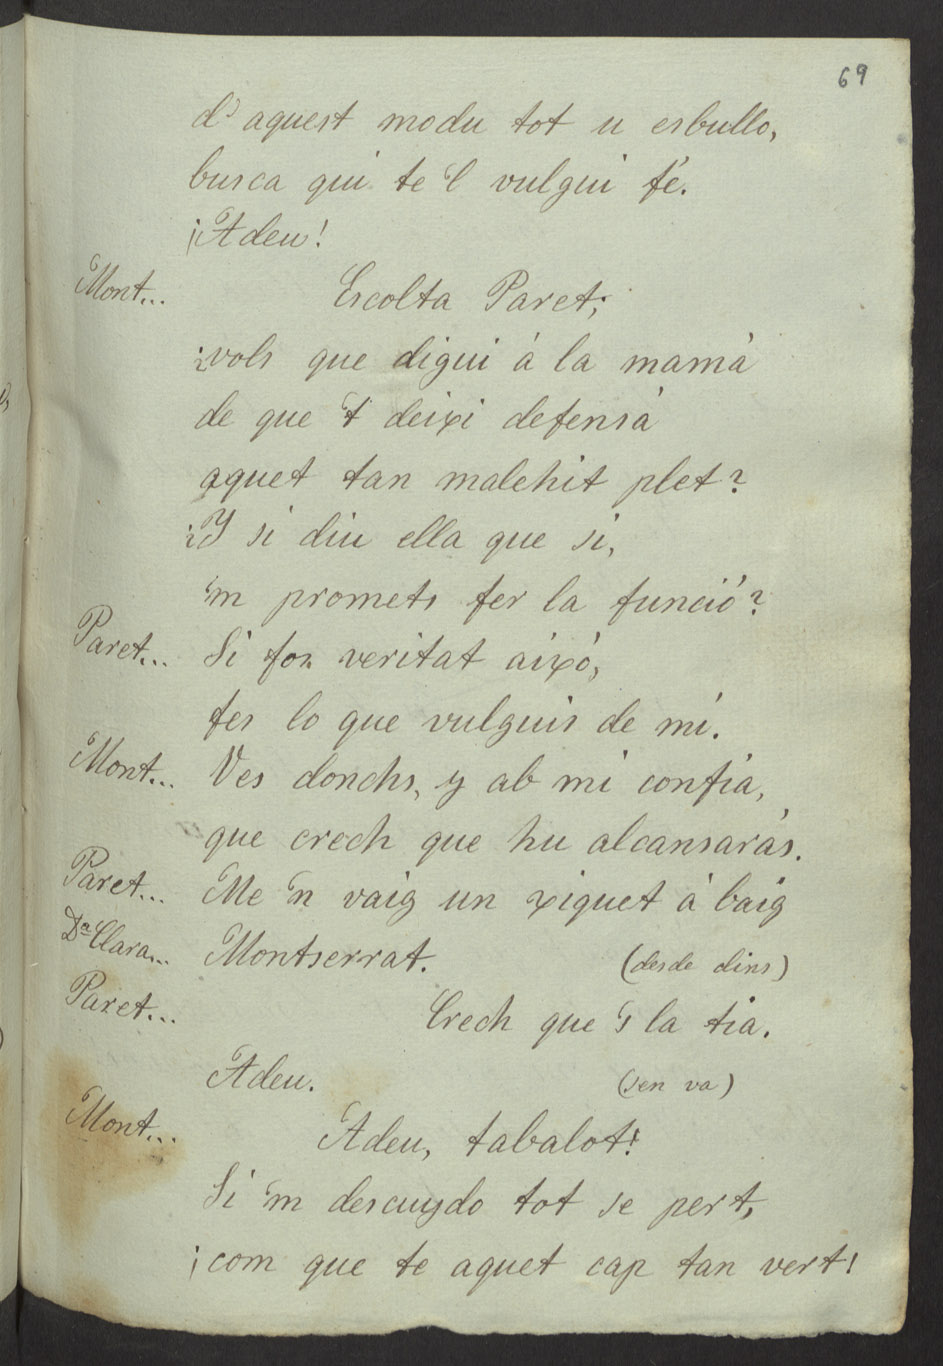 69
d' aquest modu tot u esbullo,
busca qui te 'l vulgui fé.
¡Adeu!
Mont... Escolta Paret;
¿vols que digui á la mamá
de que 't deixi defensá
aquet tan malehit plet?
¿Y si diu ella que si,
'm promets fer la funció?
Paret... Si fos veritat aixó,
fes lo que vulguis de mí.
Mont... Ves donchs, y ab mi confía,
que crech que hu alcansarás.
Paret... Me 'n vaig un xiquet á baig
Dª Clara... Montserrat. (desde dins)
Paret... Crech que 's la tia.
Adeu. (sen va)
Mont... Adeu, tabalot!
Si 'm descuydo tot se pert,
¡com que te aquet cap tan vert!